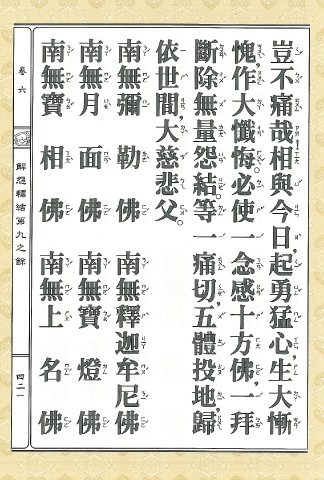 豈不痛哉相與今日起勇猛心，生大慚
愧，作大懺悔。必使一念感十方佛，一拜
斷除無量怨結。等一痛切，五體投地，歸
依世間，大慈悲父。
南無彌勒佛　南無釋迦牟尼佛
南無月面佛　南無寶燈佛
南無寶相佛　南無上名佛
卷六　解怨釋結第九之餘　四二一